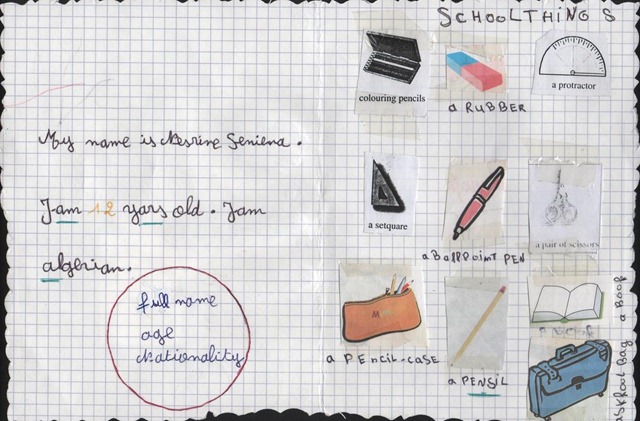 SCHOOLTHINGS
My name is Nesrine Seniena.
I am 12 yars old. I am
algerian.
full name
age
Nationality
colouring pencils
a RUBBER
a protractor
a setquare
a BallPOINT PEN
a pair of scissors
a PEncil-CASE
a PENSIL
a BOOK
a Skhool Bag